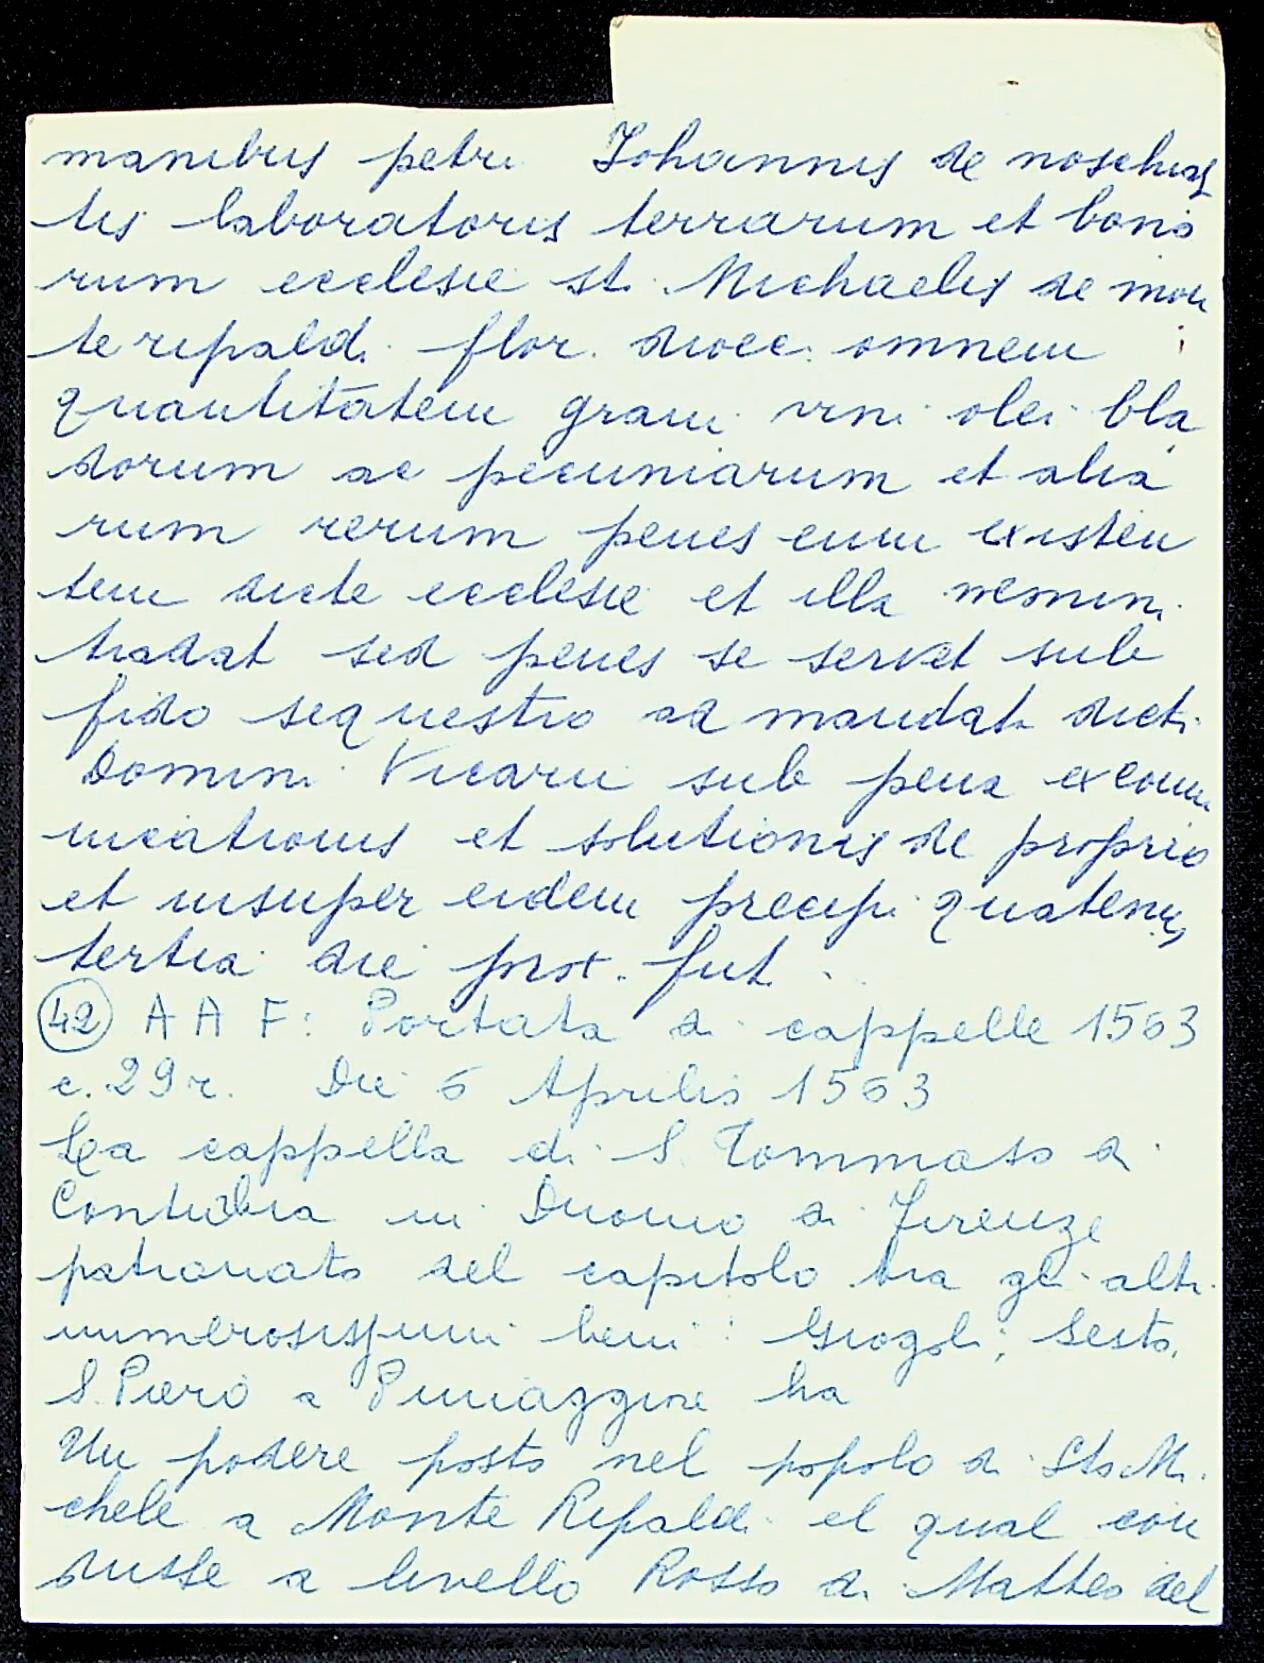 manibus petri Johannis de noschias
tis laboratoris terrarum et bono
rum ecclesie st. Michaelis de mon
te ripaldi flor. dioec. omnem
quantitatem grani vini olei bla
dorum ac pecuniarum et alia
rum rerum penes eum existen
tem dicte ecclesie et illa nemini
tradat sed penes se servet sub
fido sequestro ad mandat. dicti
Domini Vicarii sub pena excomu
nicationis et solutionis de proprio
et insuper eidem precepi quatenus
tertia die prox. fut.
(42) A A F: Portata di cappelle 1563
c. 29r. Die 6 Aprilis 1563
La cappella di S. Tommaso di
in Duomo di Firenze
patronato del capitolo tra gli altri
numerosissimi beni: Giogoli, Sesto,
S. Piero a ha
Un podere posto nel popolo di Sto Mi
chele a Monte Ripaldi el qual con
dusse a livello Rosso di Matteo del